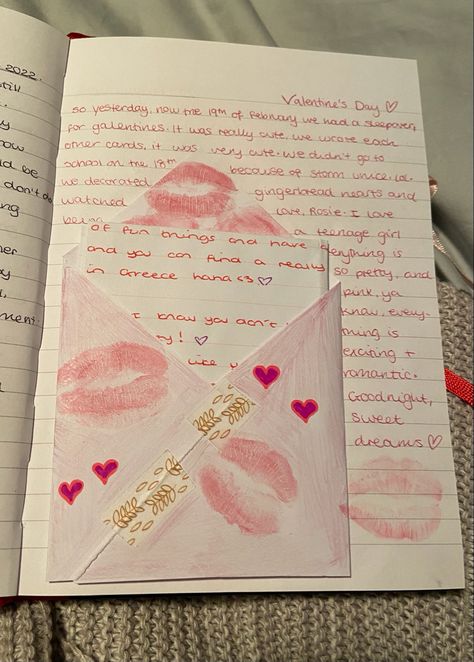 2022.
still
Valentine's Day ♡
So yesterday, now the 19th of February we had a sleepover,
for galentines. it was really cute. we wrote each
other cards, it was very cute. we didn't go to
school on the 18th because of storm unice. lol.
we decorated gingerbread hearts and
watched Love, Rosie. I love
being a teenage girl
everything is
so pretty, and
pink, ya
know, every-
thing is
exciting +
romantic.
Goodnight,
sweet
dreams ♡
of fun things and have
and you can find a really
in Greece haha <3 ♡
I know you don't
! ♡
like
be
don't